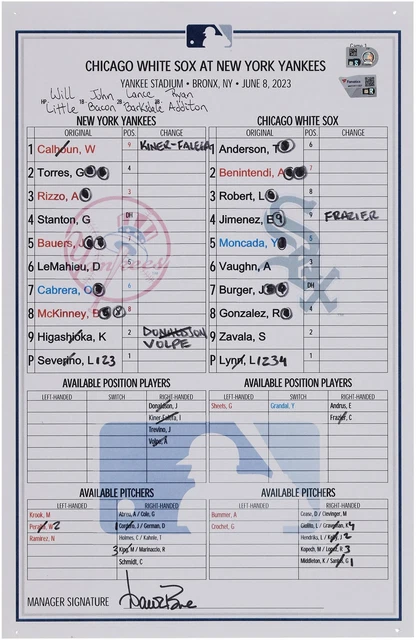 CHICAGO WHITE SOX AT NEW YORK YANKEES
YANKEE STADIUM • BRONX, NY • JUNE 8, 2023
Will John Lance Ryan
HP Little 1B Bacon 2B Barksdale 3B Additon
NEW YORK YANKEES
ORIGINAL POS. CHANGE
1 Calhoun, W 9 KINER-FALEFA
2 Torres, G 4
3 Rizzo, A 3
4 Stanton, G DH
5 Bauers, J 7
6 LeMahieu, D 5
7 Cabrera, O 6
8 McKinney, B 8
9 Higashioka, K 2 DONALDSON VOLPE
P Severino, L 123 1
CHICAGO WHITE SOX
ORIGINAL POS. CHANGE
1 Anderson, T 6
2 Benintendi, A 7
3 Robert, L 8
4 Jimenez, E 9 FRAZIER
5 Moncada, Y 5
6 Vaughn, A 3
7 Burger, J DH
8 Gonzalez, R 4
9 Zavala, S 2
P Lynn, L 1234 1
AVAILABLE POSITION PLAYERS
LEFT-HANDED SWITCH RIGHT-HANDED
Donaldson, J
Kiner-Falefa, I
Trevino, J
Volpe, A
AVAILABLE POSITION PLAYERS
LEFT-HANDED SWITCH RIGHT-HANDED
Sheets, G Grandal, Y Andrus, E
Frazier, C
AVAILABLE PITCHERS
LEFT-HANDED RIGHT-HANDED
Krook, M Abreu, A / Cole, G
Peralta, W 2 1 Cordero, J / German, D
Ramirez, N Holmes, C / Kahnle, T
3 King, M / Marinaccio, R
Schmidt, C
AVAILABLE PITCHERS
LEFT-HANDED RIGHT-HANDED
Bummer, A Cease, D / Clevinger, M
Crochet, G Giolito, L / Graveman, K 4
Hendriks, L / Kelly, J 2
Kopech, M / Lopez, R 3
Middleton, K / Santos, G 1
MANAGER SIGNATURE